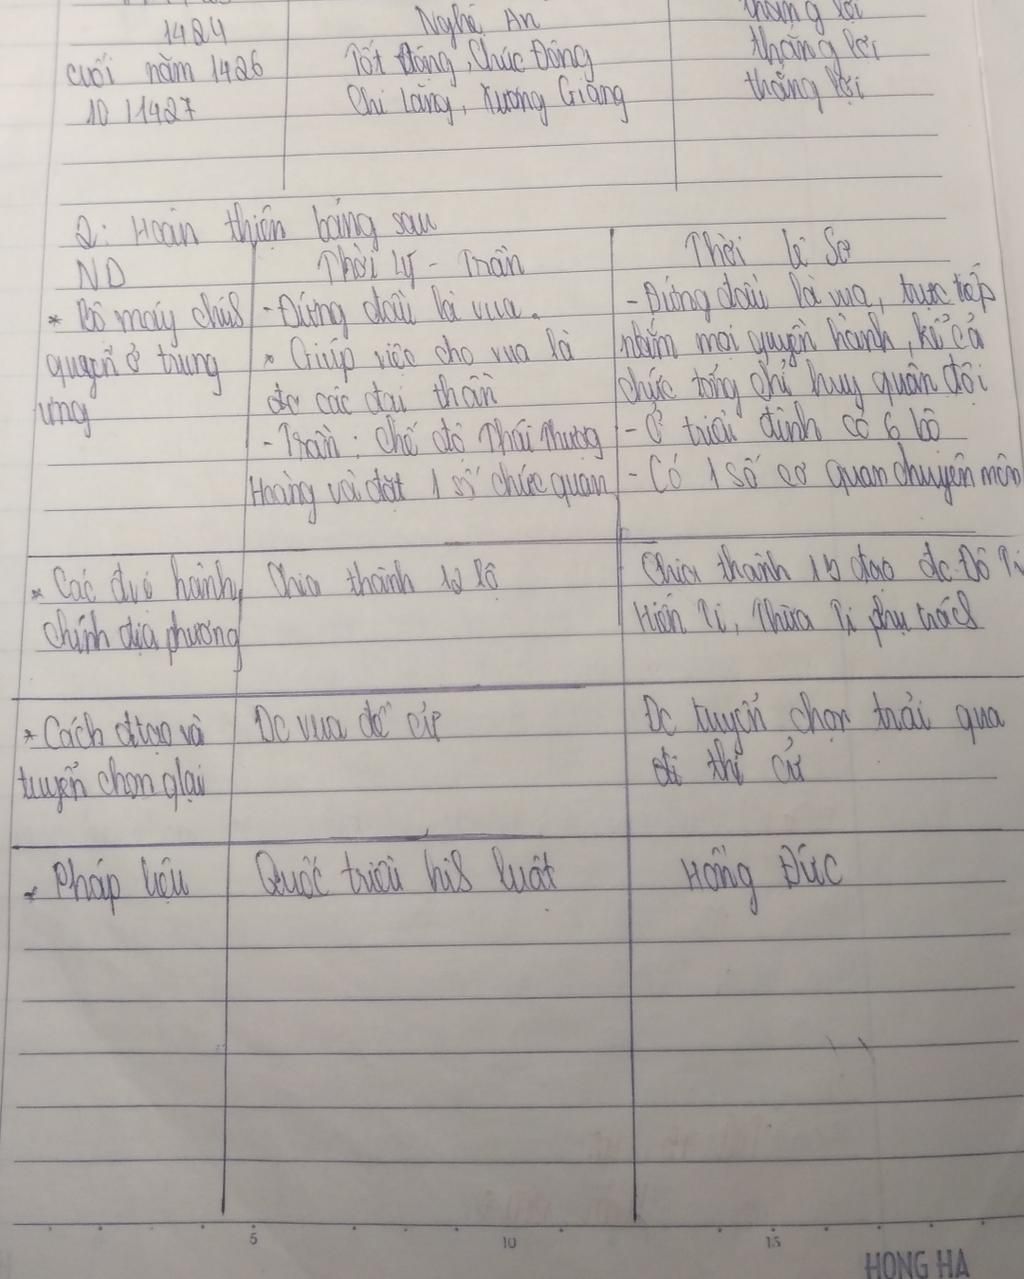 1424 Nghệ An thắng lợi
cuối năm 1426 Tốt Động, Chúc Động thắng lợi
10/1427 Chi Lăng, Xương Giang thắng lợi
2: Hoàn thiện bảng sau
ND Thời Lý - Trần Thời Lê Sơ
* Bộ máy chính - Đứng đầu là vua. - Đứng đầu là vua, trực tiếp
quyền ở trung * Giúp việc cho vua là nắm mọi quyền hành, kể cả
ương đc các đại thần chức tổng chỉ huy quân đội
- Trần: chế độ Thái Thượng - Ở triều đình có 6 bộ
Hoàng và đặt 1 số chức quan - Có 1 số cơ quan chuyên môn
* Các đvị hành Chia thành 12 lộ Chia thành 13 đạo đc Đô Ti
chính địa phương Hiến Ti, Thừa Ti phụ trách
* Cách đtạo và Đc vua đề cử Đc tuyển chọn trải qua
tuyển chọn qlại thi cử
* Pháp luật Quốc triều hình luật Hồng Đức
5 10 15
HONG HA